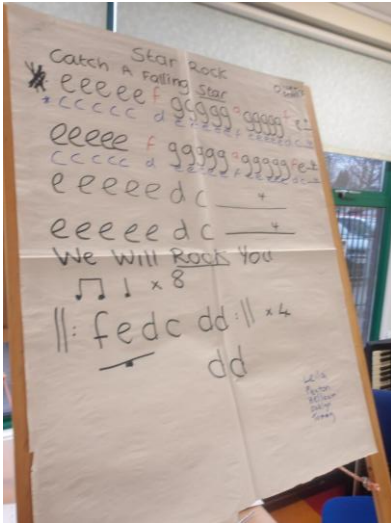 Star Rock
Catch A Falling Star
* eeeee f ggggg a ggggg f e
* ccccc d eeeee f eeeee d c
eeeee f ggggg a ggggg f e
ccccc d eeeee f eeeee d c
eeeee d c ____ 4
eeeee d c ____ 4
We Will Rock You
♫ ♩ × 8
||: fedc dd :|| × 4
dd
Leila